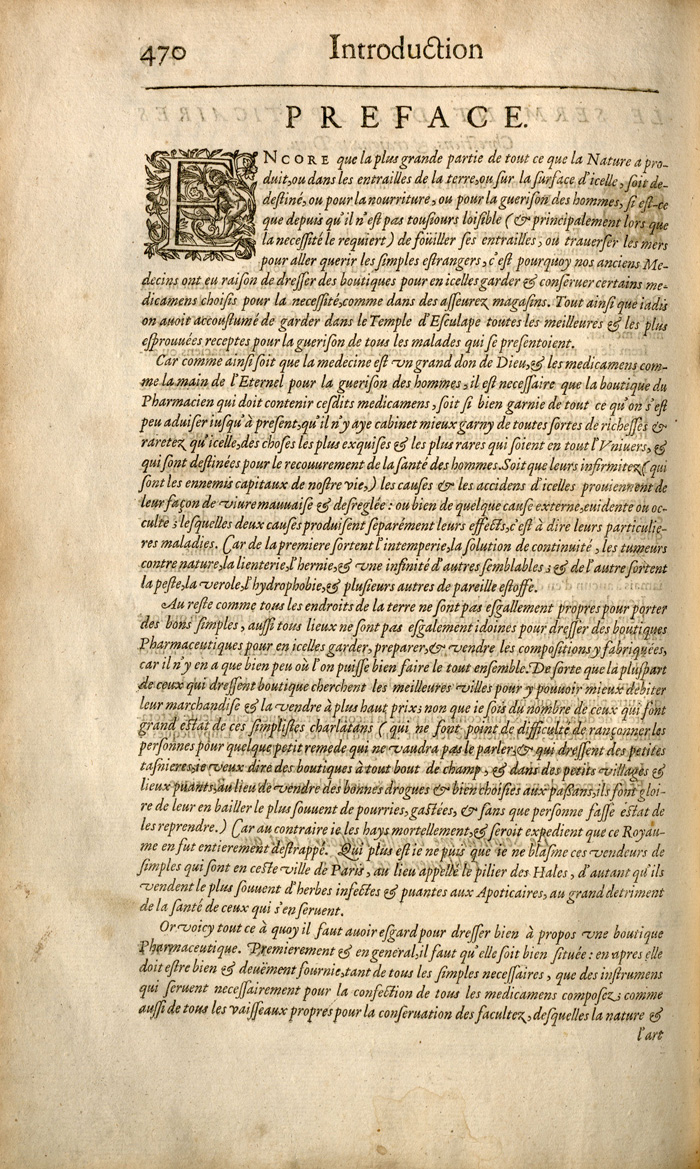 470 Introduction
PREFACE.
ENCORE que la plus grande partie de tout ce que la Nature a pro-
duit, ou dans les entrailles de la terre, ou sur la surface d'icelle, soit de-
destiné, ou pour la nourriture, ou pour la guerison des hommes, si est-ce
que depuis qu'il n'est pas tousiours loisible (& principalement lors que
la necessité le requiert) de foüiller ses entrailles, ou trauerser les mers
pour aller querir les simples estrangers, c'est pourquoy nos anciens Me-
decins ont eu raison de dresser des boutiques pour en icelles garder & conseruer certains me-
dicamens choisis pour la necessité, comme dans des asseurez magasins. Tout ainsi que iadis
on auoit accoustumé de garder dans le Temple d'Esculape toutes les meilleures & les plus
esprouuées receptes pour la guerison de tous les malades qui se presentoient.
Car comme ainsi soit que la medecine est vn grand don de Dieu, & les medicamens com-
me la main de l'Eternel pour la guerison des hommes, il est necessaire que la boutique du
Pharmacien qui doit contenir cesdits medicamens, soit si bien garnie de tout ce qu'on s'est
peu aduiser iusqu'à present, qu'il n'y aye cabinet mieux garny de toutes sortes de richesses &
raretez qu'icelle, des choses les plus exquises & les plus rares qui soient en tout l'Vniuers, &
qui sont destinées pour le recouurement de la santé des hommes. Soit que leurs infirmitez (qui
sont les ennemis capitaux de nostre vie,) les causes & les accidens d'icelles prouiennent de
leur façon de viure mauuaise & desreglée : ou bien de quelque cause externe, euidente ou oc-
culte ; lesquelles deux causes produisent separément leurs effects, c'est à dire leurs particulie-
res maladies. Car de la premiere sortent l'intemperie, la solution de continuité, les tumeurs
contre nature, la lienterie, l'hernie, & vne infinité d'autres semblables ; & de l'autre sortent
la peste, la verole, l'hydrophobie, & plusieurs autres de pareille estoffe.
Au reste comme tous les endroits de la terre ne sont pas esgallement propres pour porter
des bons simples, aussi tous lieux ne sont pas esgalement idoines pour dresser des boutiques
Pharmaceutiques pour en icelles garder, preparer, & vendre les compositions y fabriquées,
car il n'y en a que bien peu où l'on puisse bien faire le tout ensemble. De sorte que la pluspart
de ceux qui dressent boutique cherchent les meilleures villes pour y pouuoir mieux debiter
leur marchandise & la vendre à plus haut prix ; non que ie sois du nombre de ceux qui font
grand estat de ces simplistes charlatans (qui ne font point de difficulté de rançonner les
personnes pour quelque petit remede qui ne vaudra pas le parler, & qui dressent des petites
tasnieres, ie veux dire des boutiques à tout bout de champ, & dans des petits villages &
lieux puants, au lieu de vendre des bonnes drogues & bien choisies aux passans, ils font gloi-
re de leur en bailler le plus souuent de pourries, gastées, & sans que personne fasse estat de
les reprendre.) Car au contraire ie les hays mortellement, & seroit expedient que ce Royau-
me en fut entierement destrappé. Qui plus est ie ne puis que ie ne blasme ces vendeurs de
simples qui sont en ceste ville de Paris, au lieu appellé le pilier des Hales, d'autant qu'ils
vendent le plus souuent d'herbes infectes & puantes aux Apoticaires, au grand detriment
de la santé de ceux qui s'en seruent.
Or voicy tout ce à quoy il faut auoir esgard pour dresser bien à propos vne boutique
Pharmaceutique. Premierement & en general, il faut qu'elle soit bien située : en apres elle
doit estre bien & deuëment fournie, tant de tous les simples necessaires, que des instrumens
qui seruent necessairement pour la confection de tous les medicamens composez, comme
aussi de tous les vaisseaux propres pour la conseruation des facultez, desquelles la nature &
l'art